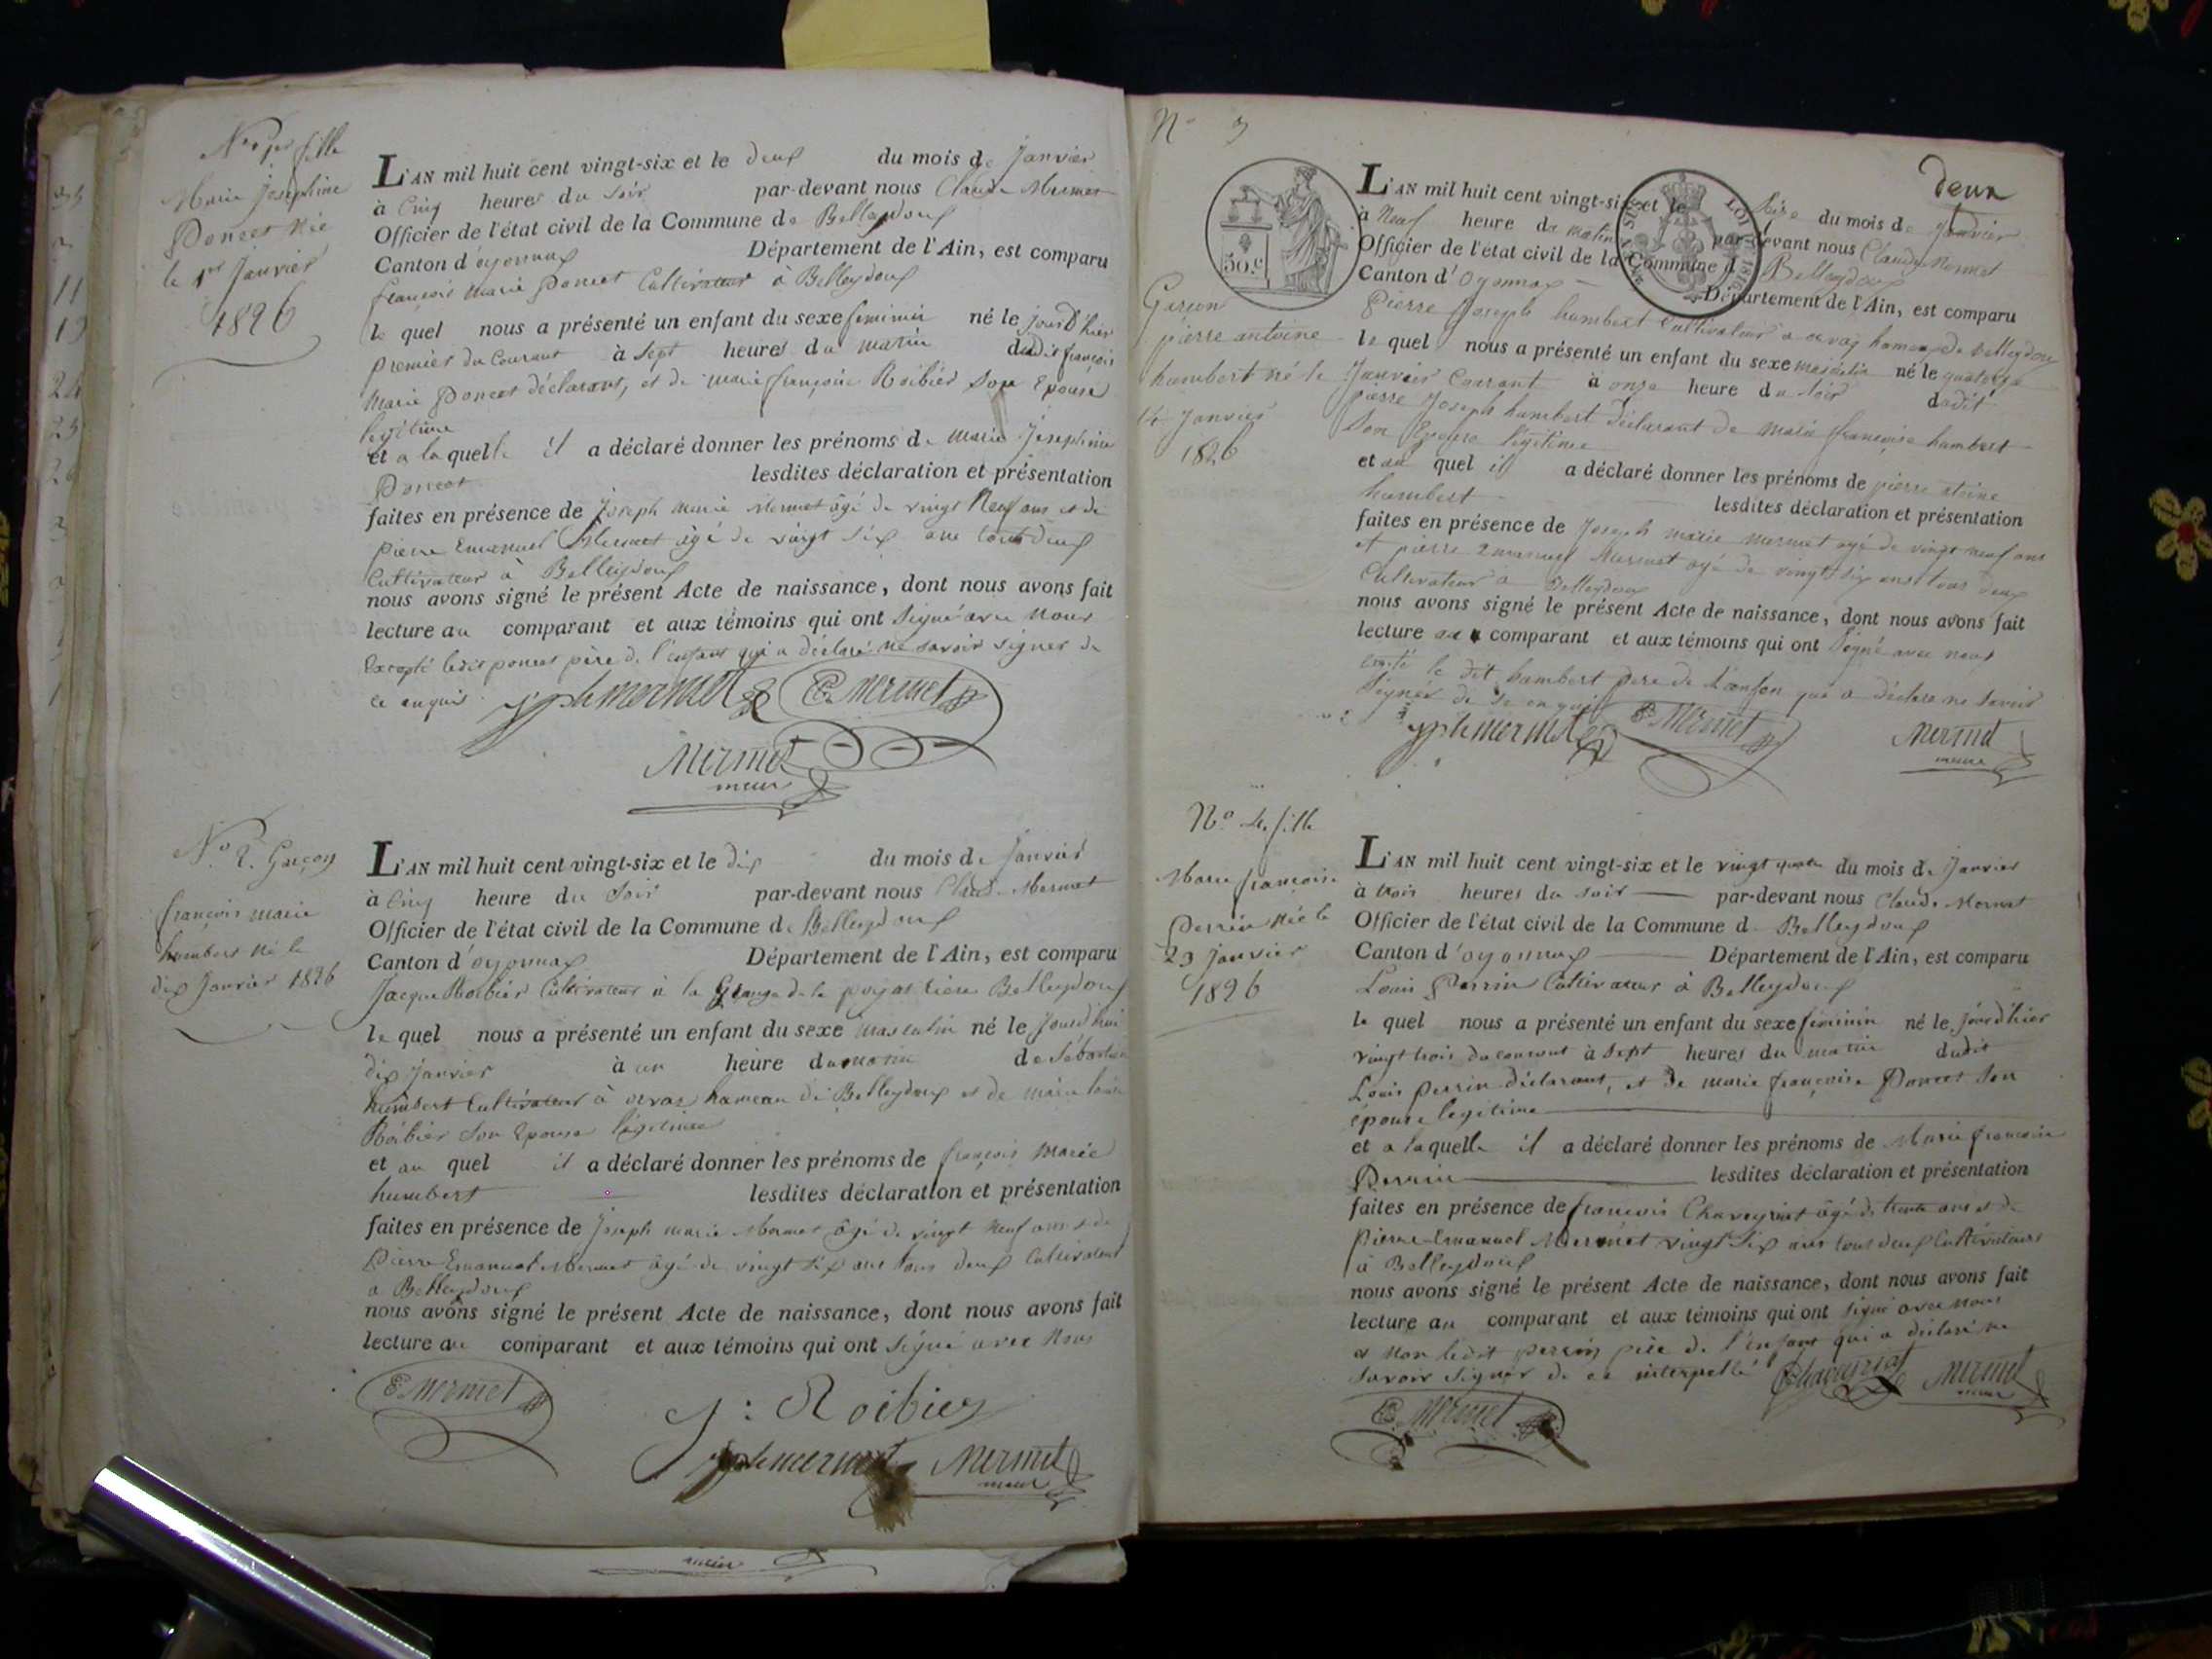 No 1er fille
Marie Josephine
Poncet Née
le 1er Janvier
1826
L'AN mil huit cent vingt-six et le deux du mois de Janvier
à Cinq heures du Soir par-devant nous Claude Mermet
Officier de l'état civil de la Commune de Belleydoux
Canton d'oyonnax Département de l'Ain, est comparu
françois marie Poncet Cultivateur à Belleydoux
le quel nous a présenté un enfant du sexe feminin né le jourd'hier
premier du Courant à Sept heures du matin dudit françois
Marie Poncet déclarant, et de marie françoise Roibier Son Epouse
légitime
et a la quelle il a déclaré donner les prénoms de Marie Josephine
Poncet lesdites déclaration et présentation
faites en présence de Joseph Marie Mermet âgé de vingt Neuf ans et de
Pierre Emanuel Mermet âgé de vingt Six ans tout deux
Cultivateur à Belleydoux
nous avons signé le présent Acte de naissance, dont nous avons fait
lecture au comparant et aux témoins qui ont Signé avec Nous
Excepté ledit poncet père de l'enfant qui a déclaré ne savoir signer de
ce enquis
jph mermet E Mermet
Mermet
maire
No 2. Garçon
françois marie
humbert Né le
dix Janvier 1826
L'AN mil huit cent vingt-six et le dix du mois de Janvier
à Cinq heure du Soir par-devant nous Claude Mermet
Officier de l'état civil de la Commune de Belleydoux
Canton d'oyonnax Département de l'Ain, est comparu
Jacque Roibier Cultivateur à la Grange de la Belleydoux
le quel nous a présenté un enfant du sexe masculin né le Jourd'hui
dix Janvier à un heure du matin de Sébastien
humbert Cultivateur à orvaz hameau de Belleydoux et de marie
Roibier Son Epouse légitime
et au quel il a déclaré donner les prénoms de françois Marie
humbert lesdites déclaration et présentation
faites en présence de Joseph marie Mermet âgé de vingt Neuf ans et de
Pierre Emanuel Mermet âgé de vingt Six ans tous deux Cultivateur
a Belleydoux
nous avons signé le présent Acte de naissance, dont nous avons fait
lecture au comparant et aux témoins qui ont Signé avec Nous
E Mermet
J: Roibier
jph mermet Mermet
maire
maire
No 3
deux
30.c
LOI 1816
Garçon
pierre antoine
humbert né le
14 Janvier
1826
L'AN mil huit cent vingt-six et le Seize du mois de Janvier
à Neuf heure du matin par-devant nous Claude Mermet
Officier de l'état civil de la Commune d Belleydoux
Canton d'Oyonnax Département de l'Ain, est comparu
Pierre Joseph humbert Cultivateur a orvaz hameau de Belleydoux
le quel nous a présenté un enfant du sexe masculin né le quatorze
Janvier Courant à onze heure du Soir dudit
pierre Joseph humbert déclarant de Marie françoise humbert
Son Epouse légitime
et au quel il a déclaré donner les prénoms de pierre
humbert lesdites déclaration et présentation
faites en présence de Joseph marie mermet agé de vingt neuf ans
et pierre Mermet agé de vingt six ans tous deux
Cultivateur a Belleydoux
nous avons signé le présent Acte de naissance, dont nous avons fait
lecture au comparant et aux témoins qui ont Signé avec nous
le dit humbert pere de qui a déclare ne Savoir
Signer de
jph mermet E Mermet Mermet
maire
No 4. fille
Marie françoise
Perrin Née le
23 Janvier
1826
L'AN mil huit cent vingt-six et le vingt quatre du mois de Janvier
à trois heures du soir par-devant nous Claude Mermet
Officier de l'état civil de la Commune d Belleydoux
Canton d'oyonnax Département de l'Ain, est comparu
Louis Perrin Cultivateur à Belleydoux
le quel nous a présenté un enfant du sexe feminin né le jourd'hier
vingt trois du courant à Sept heures du matin dudit
Louis Perrin déclarant, et de marie françoise Poncet Son
épouse legitime
et a laquelle il a déclaré donner les prénoms de Marie françoise
Perrin lesdites déclaration et présentation
faites en présence de françois Chaveyriat âgé de trente ans et de
Pierre Emanuel Mermet vingt Six ans tout deux Cultivateurs
à Belleydoux
nous avons signé le présent Acte de naissance, dont nous avons fait
lecture au comparant et aux témoins qui ont Signé avec Nous
et Non ledit perrin père de l'enfant qui a déclaré ne
savoir Signer de ce interpellé
Chaveyriat Mermet
maire
E Mermet